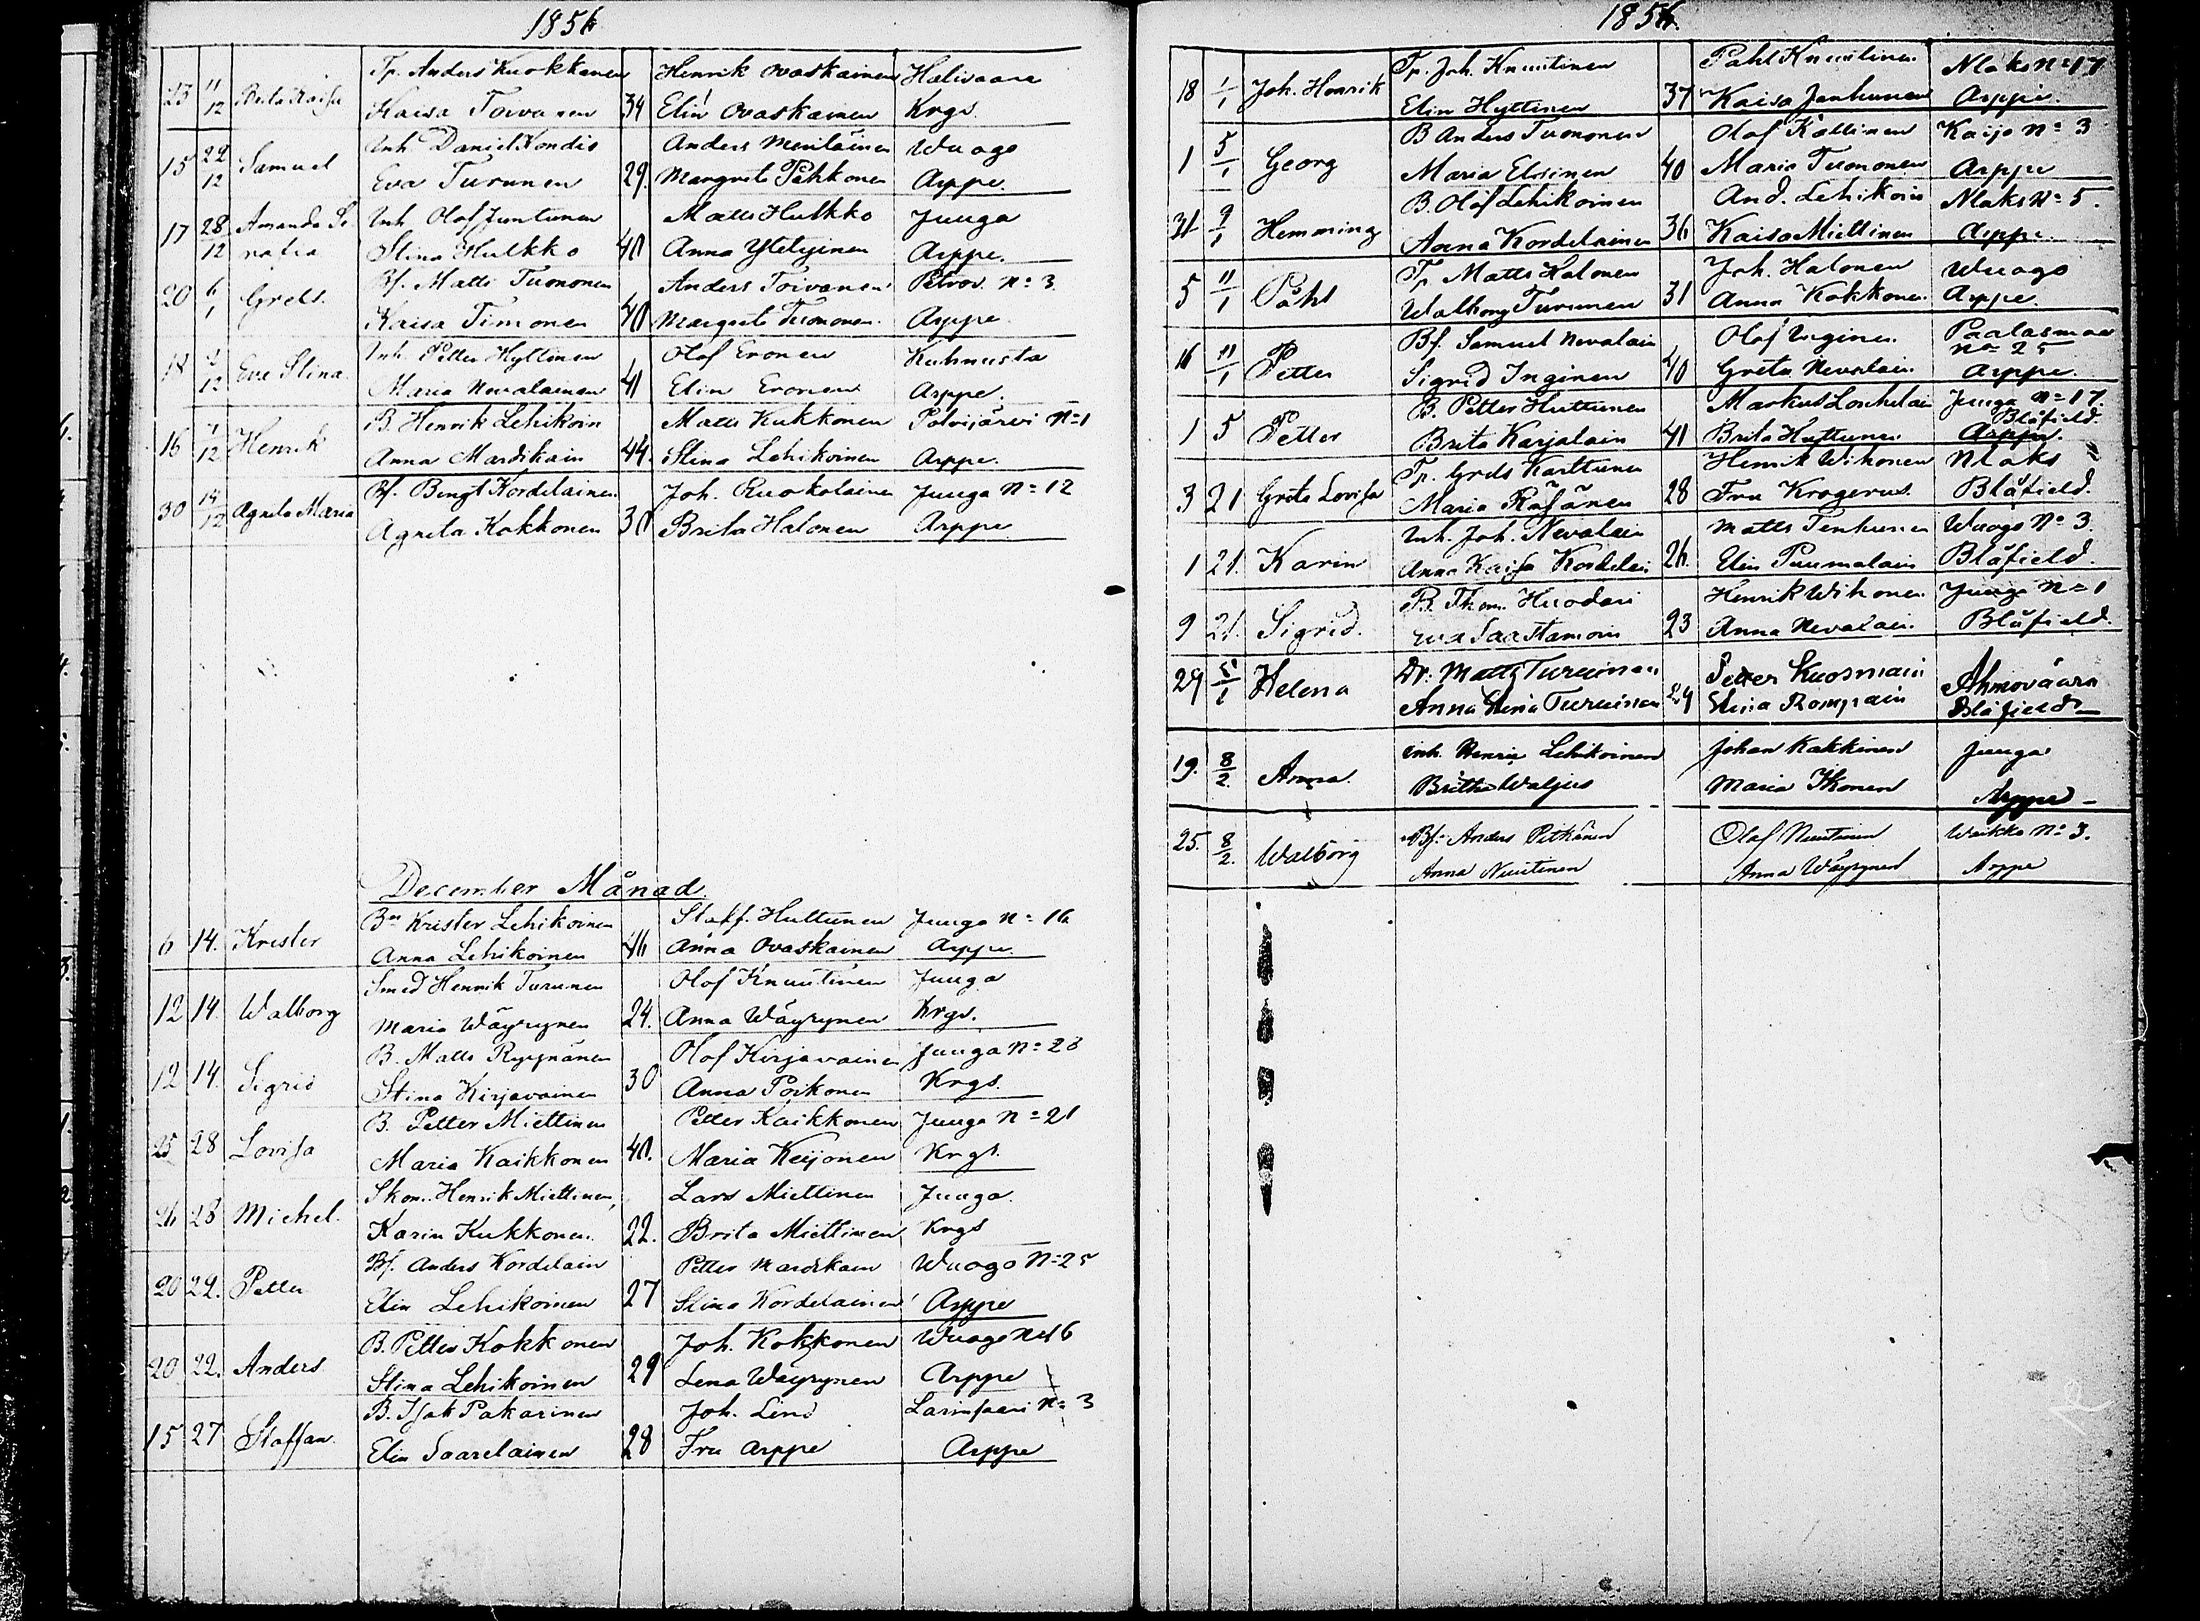 1856
23 11/12 Brita Kaisa Tp. Anders Kuokkanen Henrik Ovaskainen Halivaara
Kaisa Toivanen 34 Elin Ovaskainen Krgs.
15 22/12 Samuel Inh. Daniel Kondis Anders Meriläinen Wuago
Eva Turunen 29. Margreta Pehkonen Arppe.
17 28/12 Amanda Se Inh Olof Juntunen Matts Hulkko Juuga
rafia Stina Hulkko 40 Anna Yletyinen Arppe.
20 6/1 Grels. Bf. Matts Tuononen Anders Toivanen Petrov. N=3.
Kaisa Timonen 40 Margreta Tuononen. Arppe
18 /12 Eva Stina. Inh. Petter Hyttinen Olof Eronen Kuhnusta
Maria Nevalainen 41 Elin Eronen Arppe.
16 /12 Henrik B. Henrik Lehikoin Matts Kukkonen Polvijärvi N=1
Anna Mardikain 44. Stina Lehikoinen Arppe.
30 14/12 Agneta Maria Bf. Bengt Kordelainen Joh. Ruokolainen Juuga N=12
Agneta Kokkonen 30 Brita Halonen Arppe.
December Månad.
6 14. Krister Bn Krister Lehikoinen Staff. Huttunen Juuga N=16
Anna Lehikoinen 46 Anna Ovaskainen Arppe.
12 14. Walborg Smed Henrik Turunen Olof Knuutinen Juuga
Maria Wäyrynen 24. Anna Wäyrynen Krgs.
12 14. Sigrid B. Matts Ryynänen Olof Kirjavainen Juuga N=23
Stina Kirjavainen 30 Anna Poikonen Krgs.
25 28 Lovisa B. Petter Miettinen Petter Kaikkonen Juuga N=21
Maria Kaikkonen 40. Maria Keijonen Krgs.
26 28 Michel. Skom. Henrik Miettinen, Lars Miettinen Juuga.
Karin Kukkonen. 22. Brita Miettinen Krgs
20 22. Petter Bf. Anders Kordelain Petter Mardikain Wuago N=25
Elin Lehikoinen 27 Stina Kordelainen Arppe
20 22. Anders B. Petter Kokkonen Joh. Kokkonen Wuago N=16
Stina Lehikoinen 29 Lena Wäyrynen Arppe
15 27 Staffan. B. Isak Pakarinen Joh. Lind Larinsaari N=3
Elin Saarelainen 28 Fru Arppe Arppe
1856.
18 1/1 Joh. Henrik Tp. Joh. Knuutinen Påhl Knuutinen Nlaks N=17
Elin Hyttinen 37 Kaisa Janhunen Arppe.
1 5/1 Georg B Anders Tuononen Olof Kattinen Kaijo N=3
Maria Elsinen 40 Maria Tuononen Arppe
31 9/1 Hemming B. Olof Lehikoinen And. Lehikoin Nlaks N=5.
Anna Kordelainen 36 Kaisa Miettinen Arppe.
5 11/1 Påhl Tp. Matts Halonen Joh. Halonen Wuago
Walborg Turunen 31 Anna Kokkonen. Arppe.
16 11/1 Petter Bf. Samuel Nevalain Olof Inginen. Paalasmaa
N=25
Sigrid Inginen 40 Greta Nevalain. Arppe.
1 5 Petter B. Petter Huttunen Markus Lonkelai Juuga N=17.
Blåfield.
Brita Karjalain 41 Brita Huttunen Arppe.
3 21 Greta Lovisa Tp. Grels Karttunen Henrik Wihonen Nlaks
Maria Räsänen 28 Fru Krogerus. Blåfield.
1 21. Karin Inh. Joh. Nevalain Matts Tenhunen Wuago N=3.
Anna Kaisa Kordelai 26. Elin Puumalain Blåfield.
9 21. Sigrid. B. Thom. Huodari Henrik Wihonen Juuga N=1
Eva Saastamoin 23 Anna Nevalain. Blåfield.
29 5/1 Helena Dr. Matts Turuinen Petter Kuosmain Ahmovaara
Anna Stina Turuinen 29 Stina Rompain Blåfield
19. 8/2. Anna. Inh. Henric Lehikoinen Johan Kakkinen Juuga
Britha Waljus Maria Ikonen Arppe
25. 8/2. Walborg Bf. Anders Pitkänen Olof Nuutinen Waikko N=3.
Anna Nuutinen Anna Wäyrynen Arppe